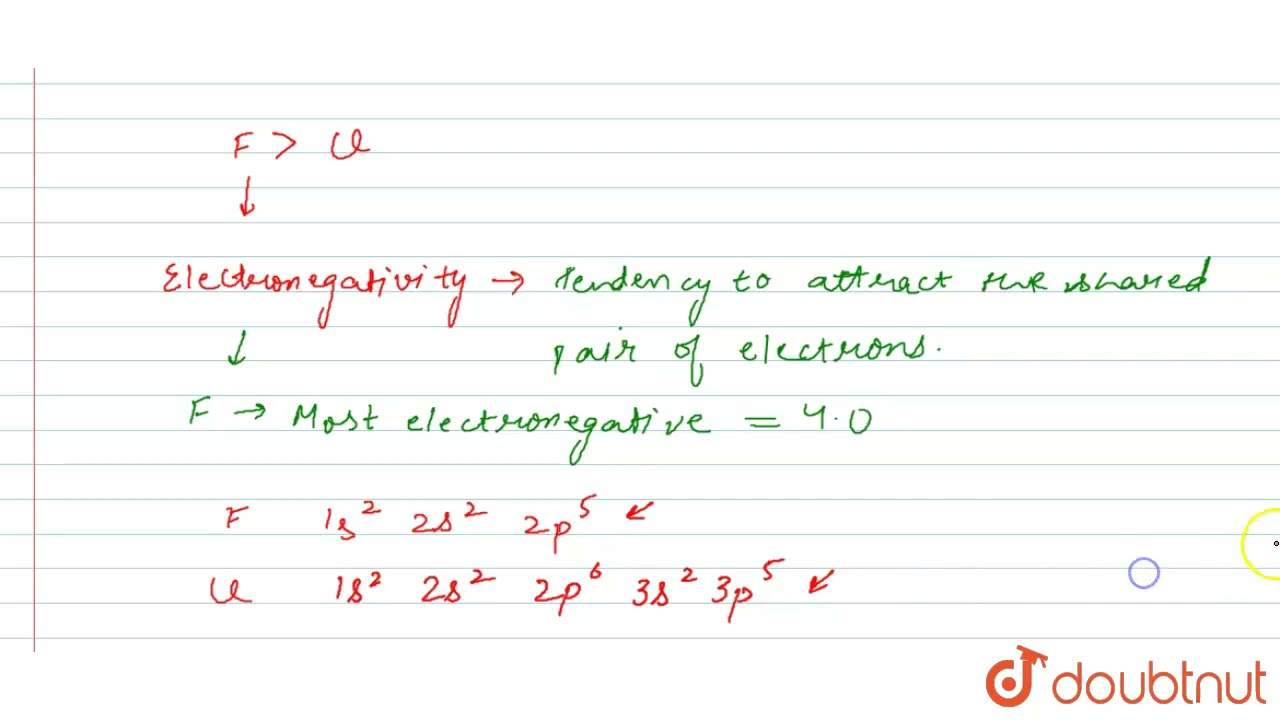 F > Cl
↓
Electronegativity → Tendency to attract the shared
↓ pair of electrons.
F → Most electronegative = 4.0
F 1s² 2s² 2p⁵ ↙
Cl 1s² 2s² 2p⁶ 3s² 3p⁵ ↙
doubtnut